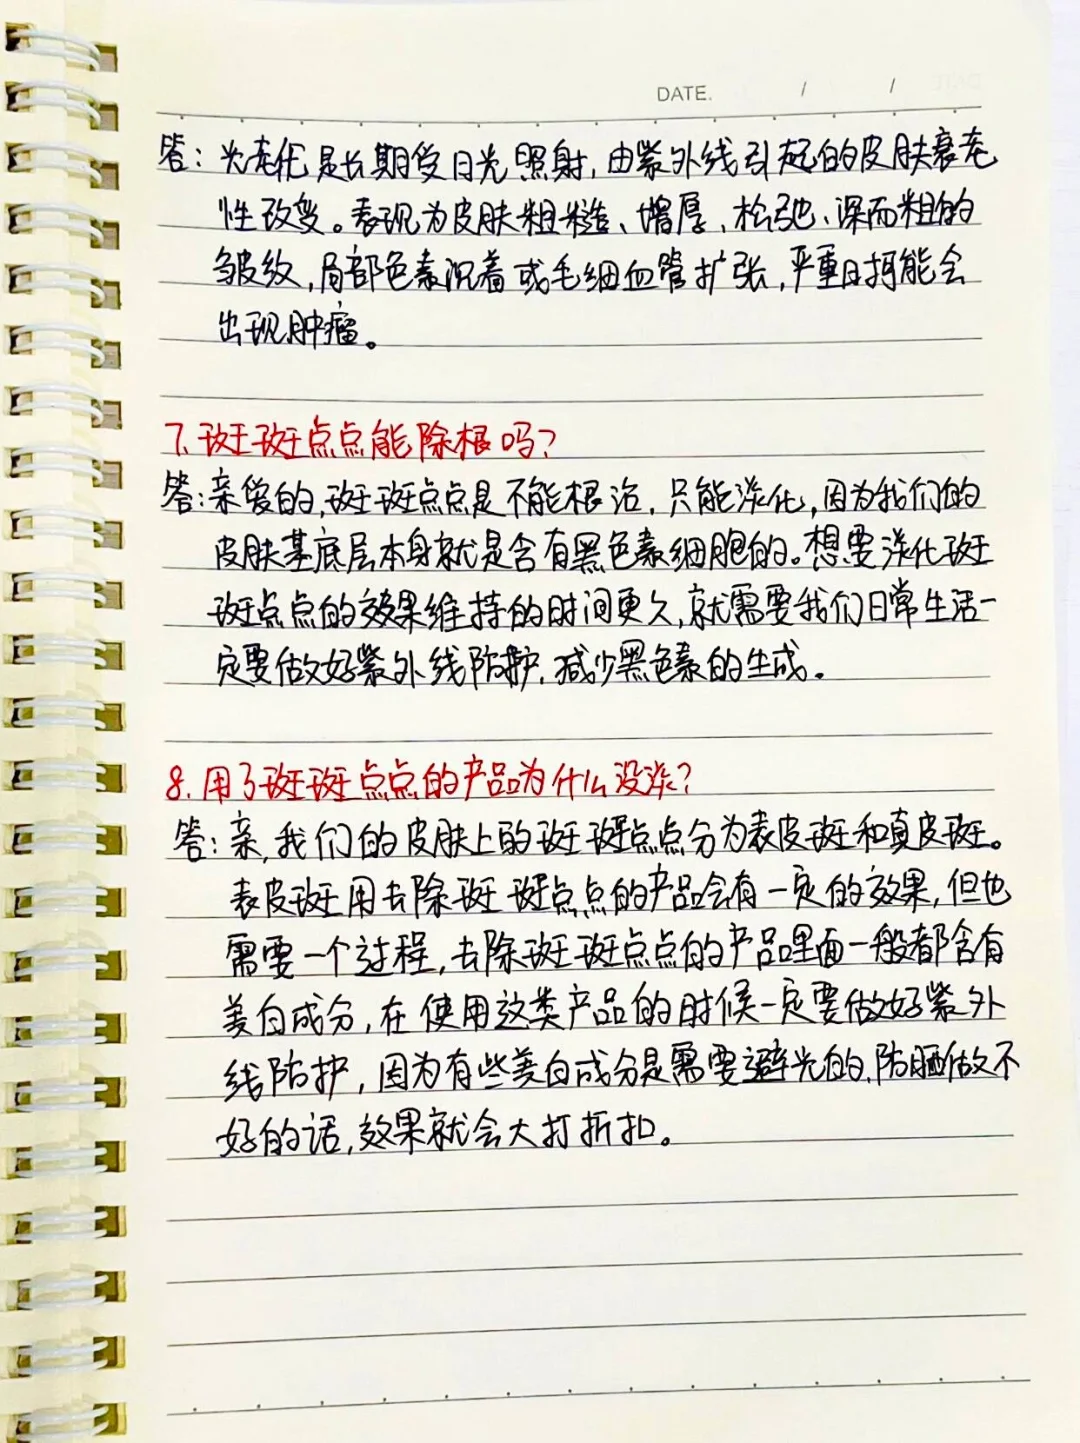 DATE. / /
答：光老化是长期受日光照射，由紫外线引起的皮肤衰老
性改变。表现为皮肤粗糙、增厚、松弛、深而粗的
皱纹，局部色素沉着或毛细血管扩张，严重时可能会
出现肿瘤。
7、斑斑点点能除根吗？
答：亲爱的，斑斑点点是不能根治，只能淡化，因为我们的
皮肤基底层本身就是含有黑色素细胞的。想要淡化斑
斑点点的效果维持的时间更久，就需要我们日常生活一
定要做好紫外线防护，减少黑色素的生成。
8.用了斑斑点点的产品为什么没淡？
答：亲，我们的皮肤上的斑斑点点分为表皮斑和真皮斑。
表皮斑用去除斑斑点点的产品会有一定的效果，但也
需要一个过程，去除斑斑点点的产品里面一般都含有
美白成分，在使用这类产品的时候一定要做好紫外
线防护，因为有些美白成分是需要避光的，防晒做不
好的话，效果就会大打折扣。